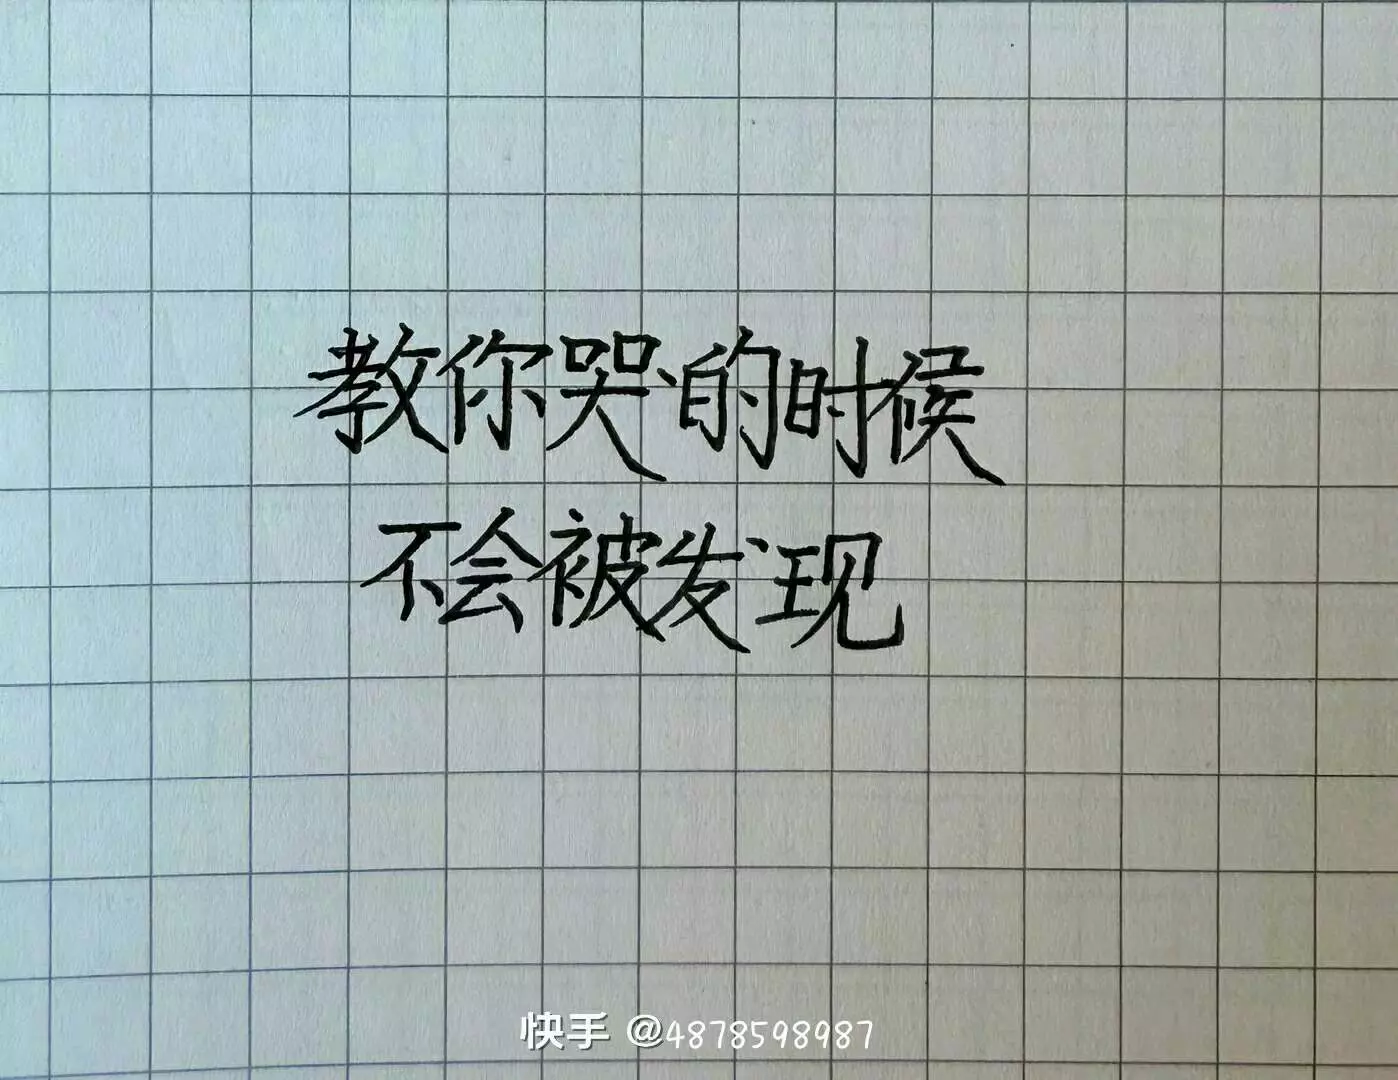 教你哭的时候
不会被发现
快手 @4878598987